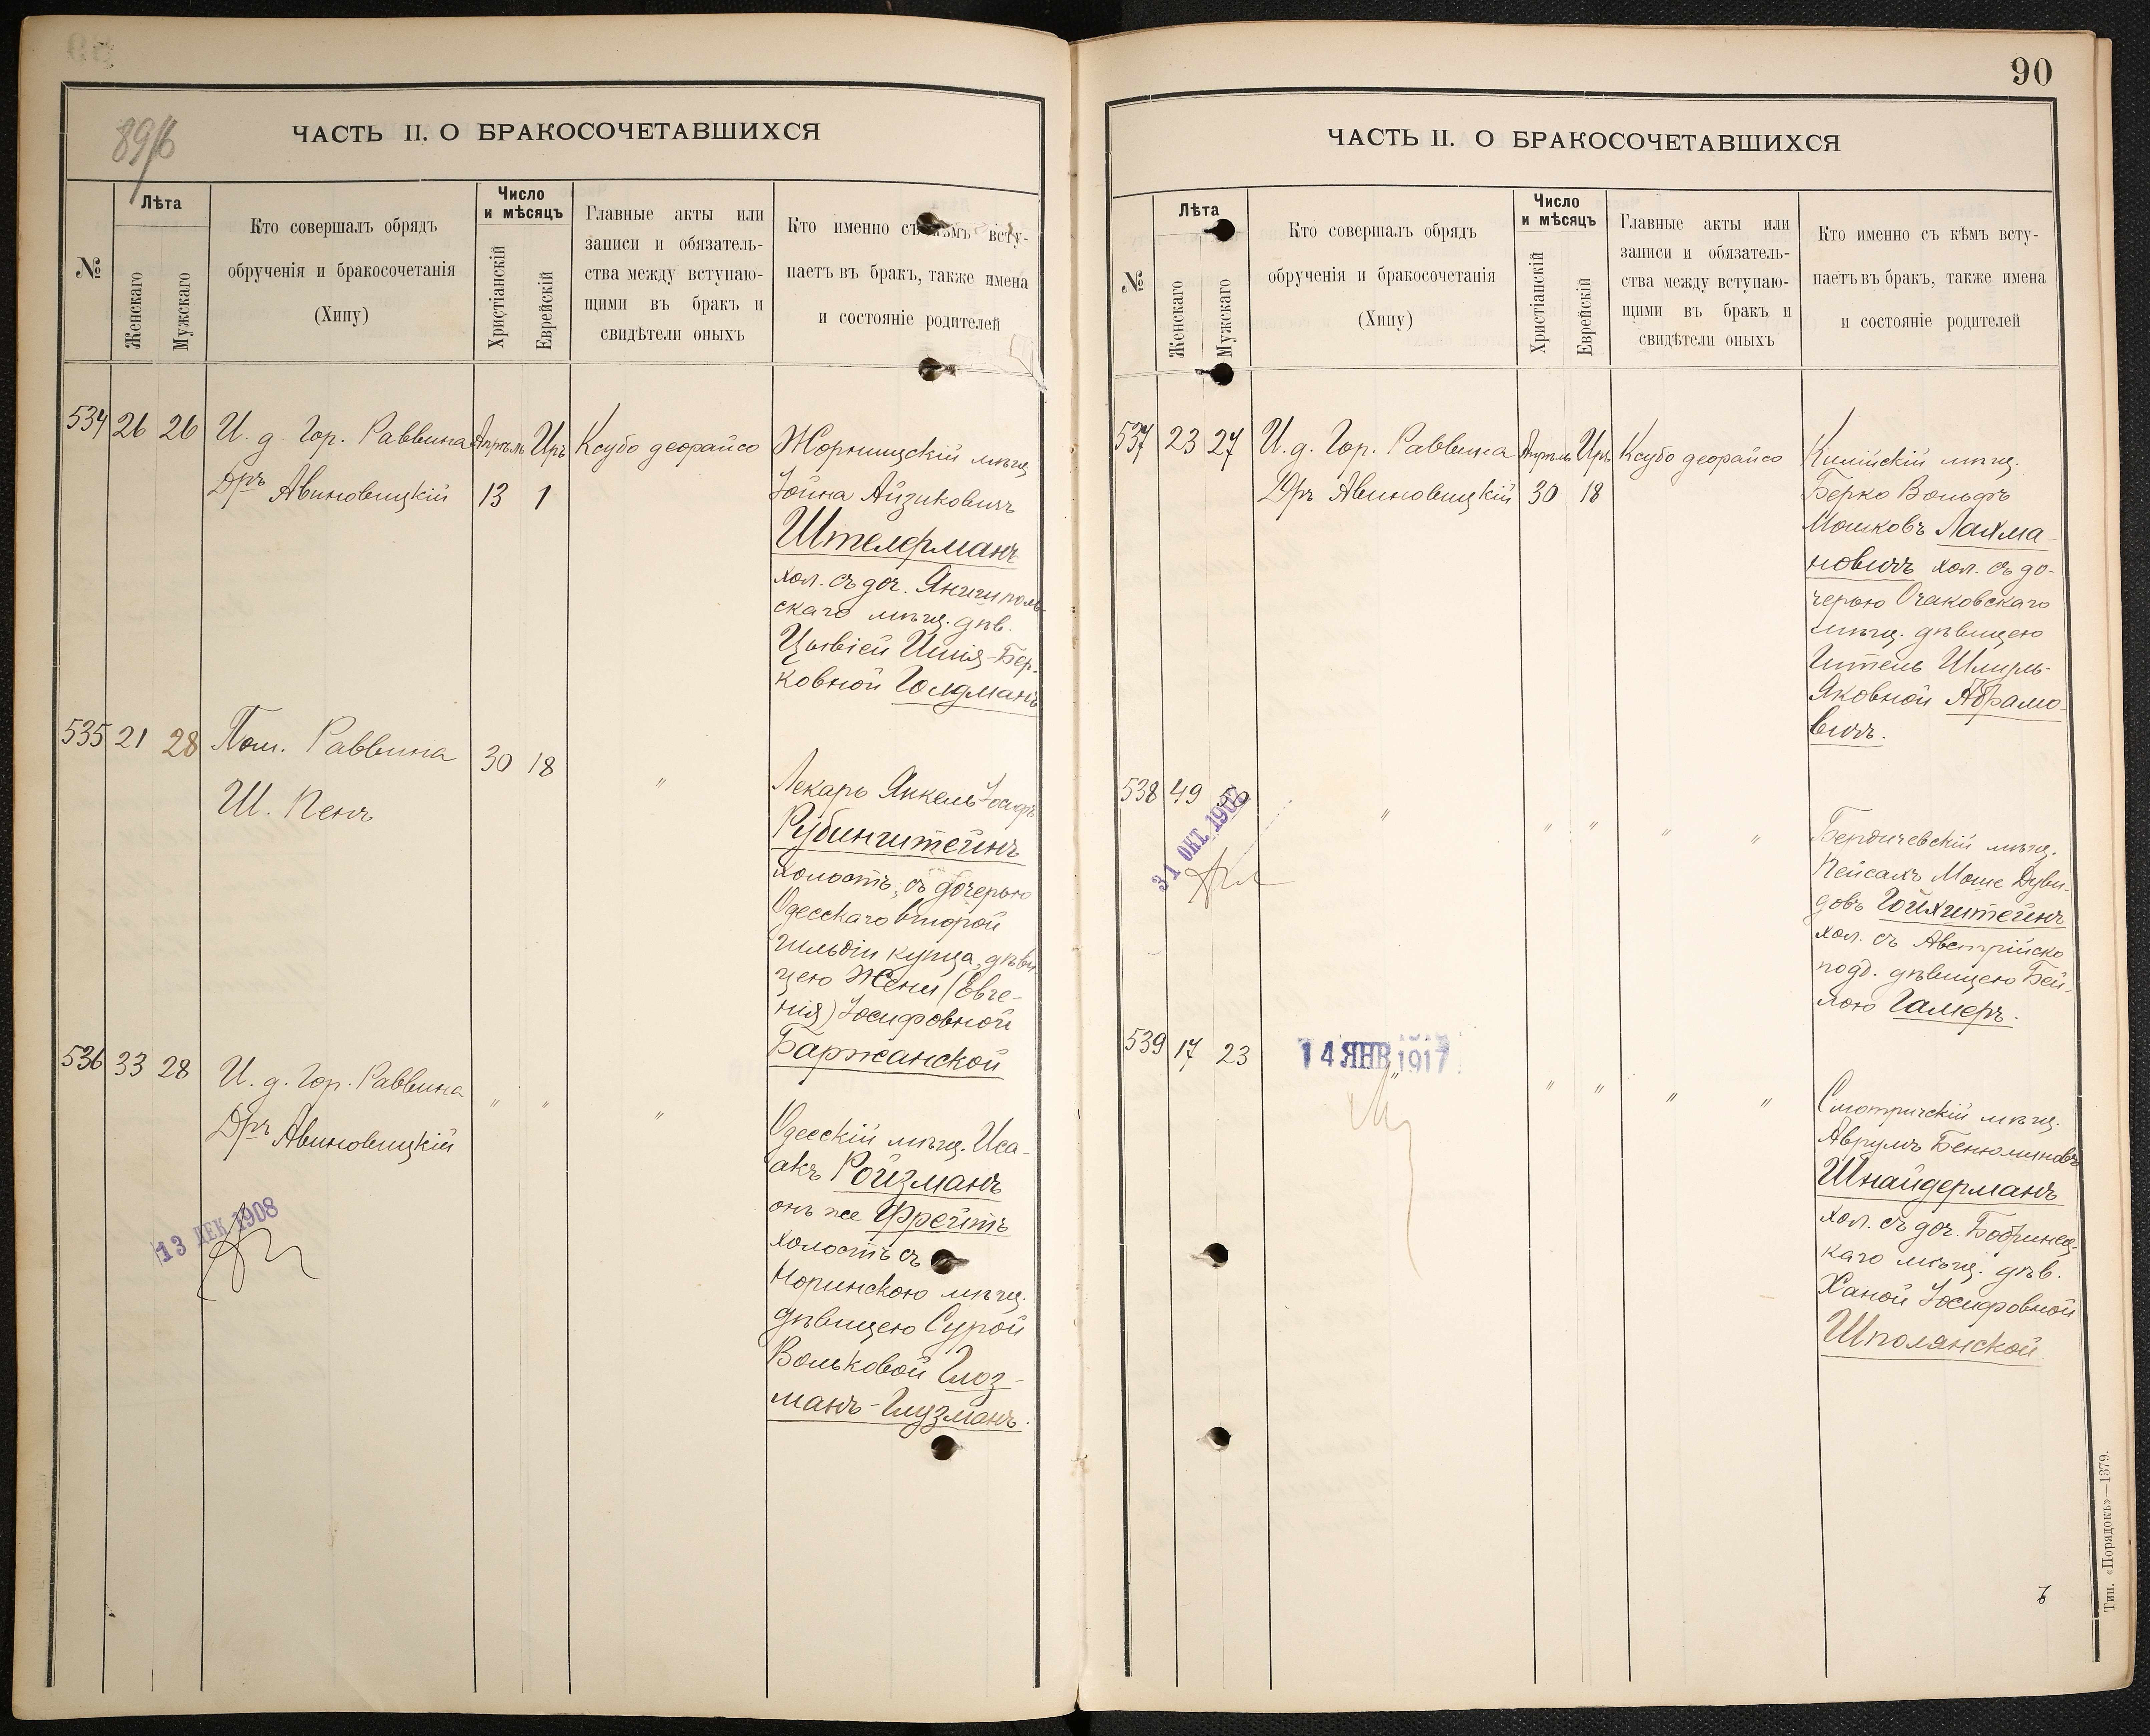 89/6
ЧАСТЬ II. О БРАКОСОЧЕТАВШИХСЯ
№
Лѣта
Женскаго
Мужскаго
Кто совершалъ обрядъ
обрученія и бракосочетанія
(Хипу)
Число
и мѣсяцъ
Христіанскій
Еврейскій
Главные акты или
записи и обязатель-
ства между вступаю-
щими въ бракъ и
свидѣтели оныхъ
Кто именно съ кѣмъ всту-
паетъ въ бракъ, также имена
и состояніе родителей
534 26 26 И. д. Гор. Раввина Апрѣль Иръ Ксубо деорайсо
Дръ Авиновицкій 13 1
Жорнищскій мѣщ.
Іойна Айзиковичъ
Штелерманъ
хол. съ доч. Янушполь-
скаго мѣщ. дѣв.
Цывіей Ишія-Бер-
ковной Голдманъ
535 21 28 Пом. Раввина 30 18 "
Ш. Пенъ
Лекарь Янкель-Іосифъ
Рубинштейнъ
холостъ, съ дочерью
Одесскаго второй
гильдіи купца, дѣви-
цею Жени (Евге-
нія) Іосифовной
Баржанской
536 33 28 И. д. Гор. Раввина " " "
Дръ Авиновицкій
13 ДЕК 1908
Одесскій мѣщ. Иса-
акъ Ройзманъ
онъ же Фрейтъ
холостъ съ
Норинскою мѣщ.
дѣвицею Сурой
Вольковой Глоз-
манъ-Глузманъ.
90
ЧАСТЬ II. О БРАКОСОЧЕТАВШИХСЯ
№
Лѣта
Женскаго
Мужскаго
Кто совершалъ обрядъ
обрученія и бракосочетанія
(Хипу)
Число
и мѣсяцъ
Христіанскій
Еврейскій
Главные акты или
записи и обязатель-
ства между вступаю-
щими въ бракъ и
свидѣтели оныхъ
Кто именно съ кѣмъ всту-
паетъ въ бракъ, также имена
и состояніе родителей
537 23 27 И. д. Гор. Раввина Апрѣль Иръ Ксубо деорайсо
Дръ Авиновицкій 30 18
Килійскій мѣщ.
Берко Вольфъ
Мошковъ Лахма-
новичъ хол. съ до-
черью Очаковскаго
мѣщ. дѣвицею
Гитель Шмуль-
Яковной Абрамо-
вичъ.
538 49 " " " " "
31 ОКТ. 1907
Бердичевскій мѣщ.
Пейсахъ Моше Дуви-
довъ Гойхштейнъ
хол. съ Австрійско
подд. дѣвицею Бей-
лою Гамеръ.
539 17 23 " " " " "
14 ЯНВ 1917
Смотричскій мѣщ.
Аврумъ Бенюминовъ
Шнайдерманъ
хол. съ доч. Бобринец-
каго мѣщ. дѣв.
Ханой Іосифовной
Шполянской
Тип. «Порядокъ»—1379.